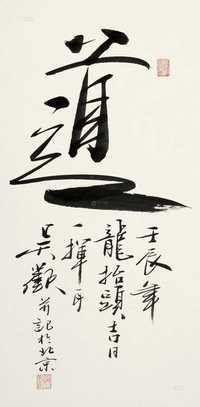 道
壬辰年
龍抬頭吉日
一揮而
吴歡并記於北京